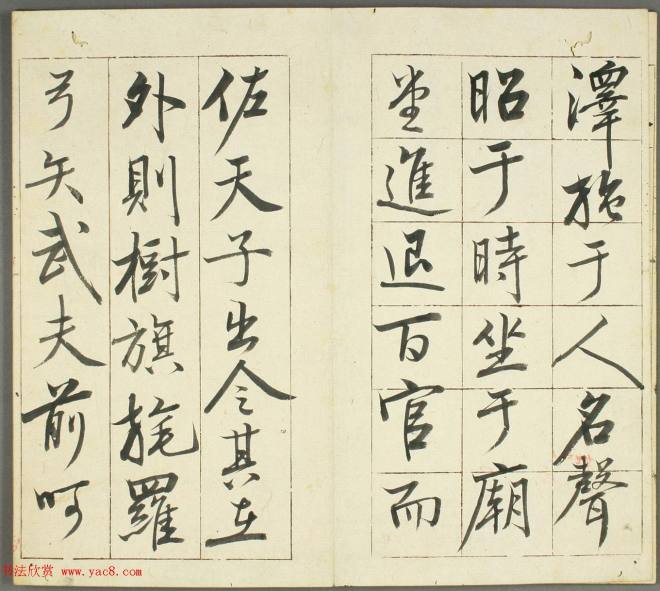 澤施于人名聲
昭于時坐于廟
堂進退百官而
佐天子出令其在
外則樹旗旄羅
弓矢武夫前呵
书法欣赏 www.yac8.com